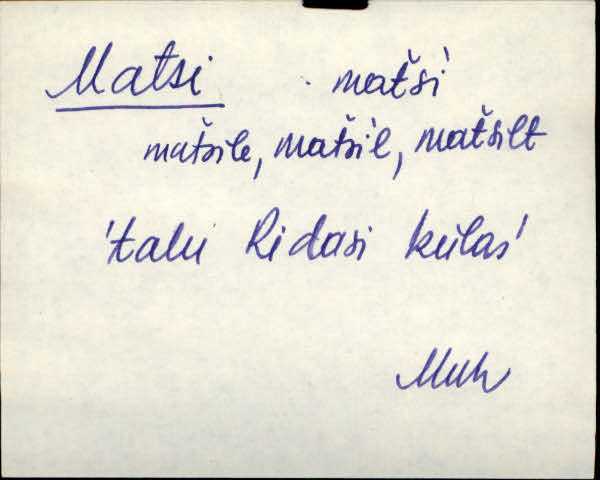 Matsi mat̆śi
mat̆sile, mat̆śil, mat̆silt
'talu Ridasi külas'
Muh